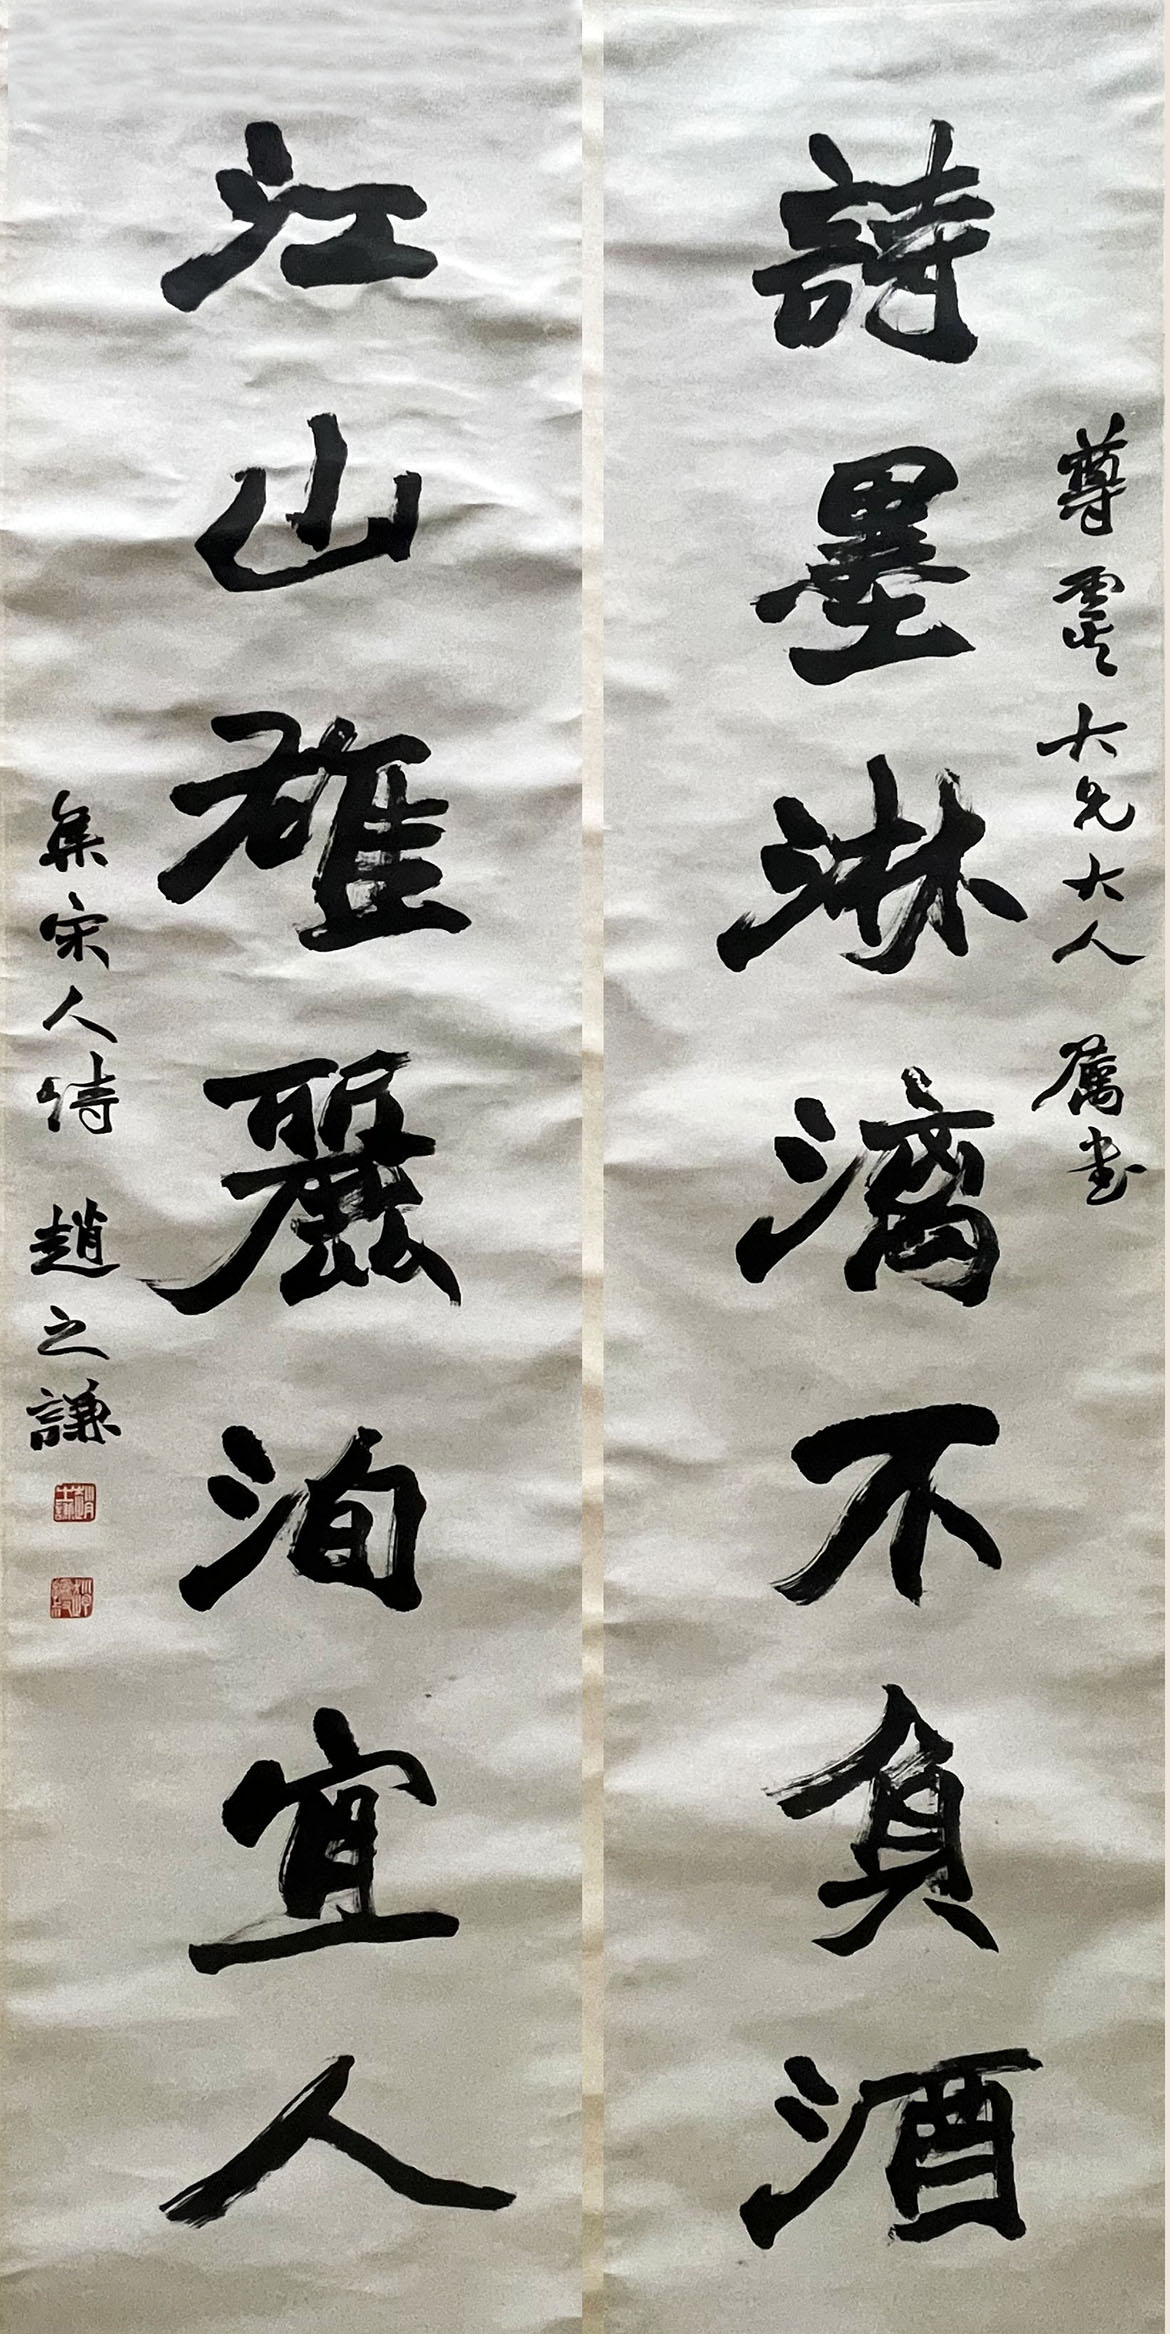 尊虚大兄大人 属書
詩墨淋漓不負酒
江山雄麗洵宜人
集宋人詩 趙之謙